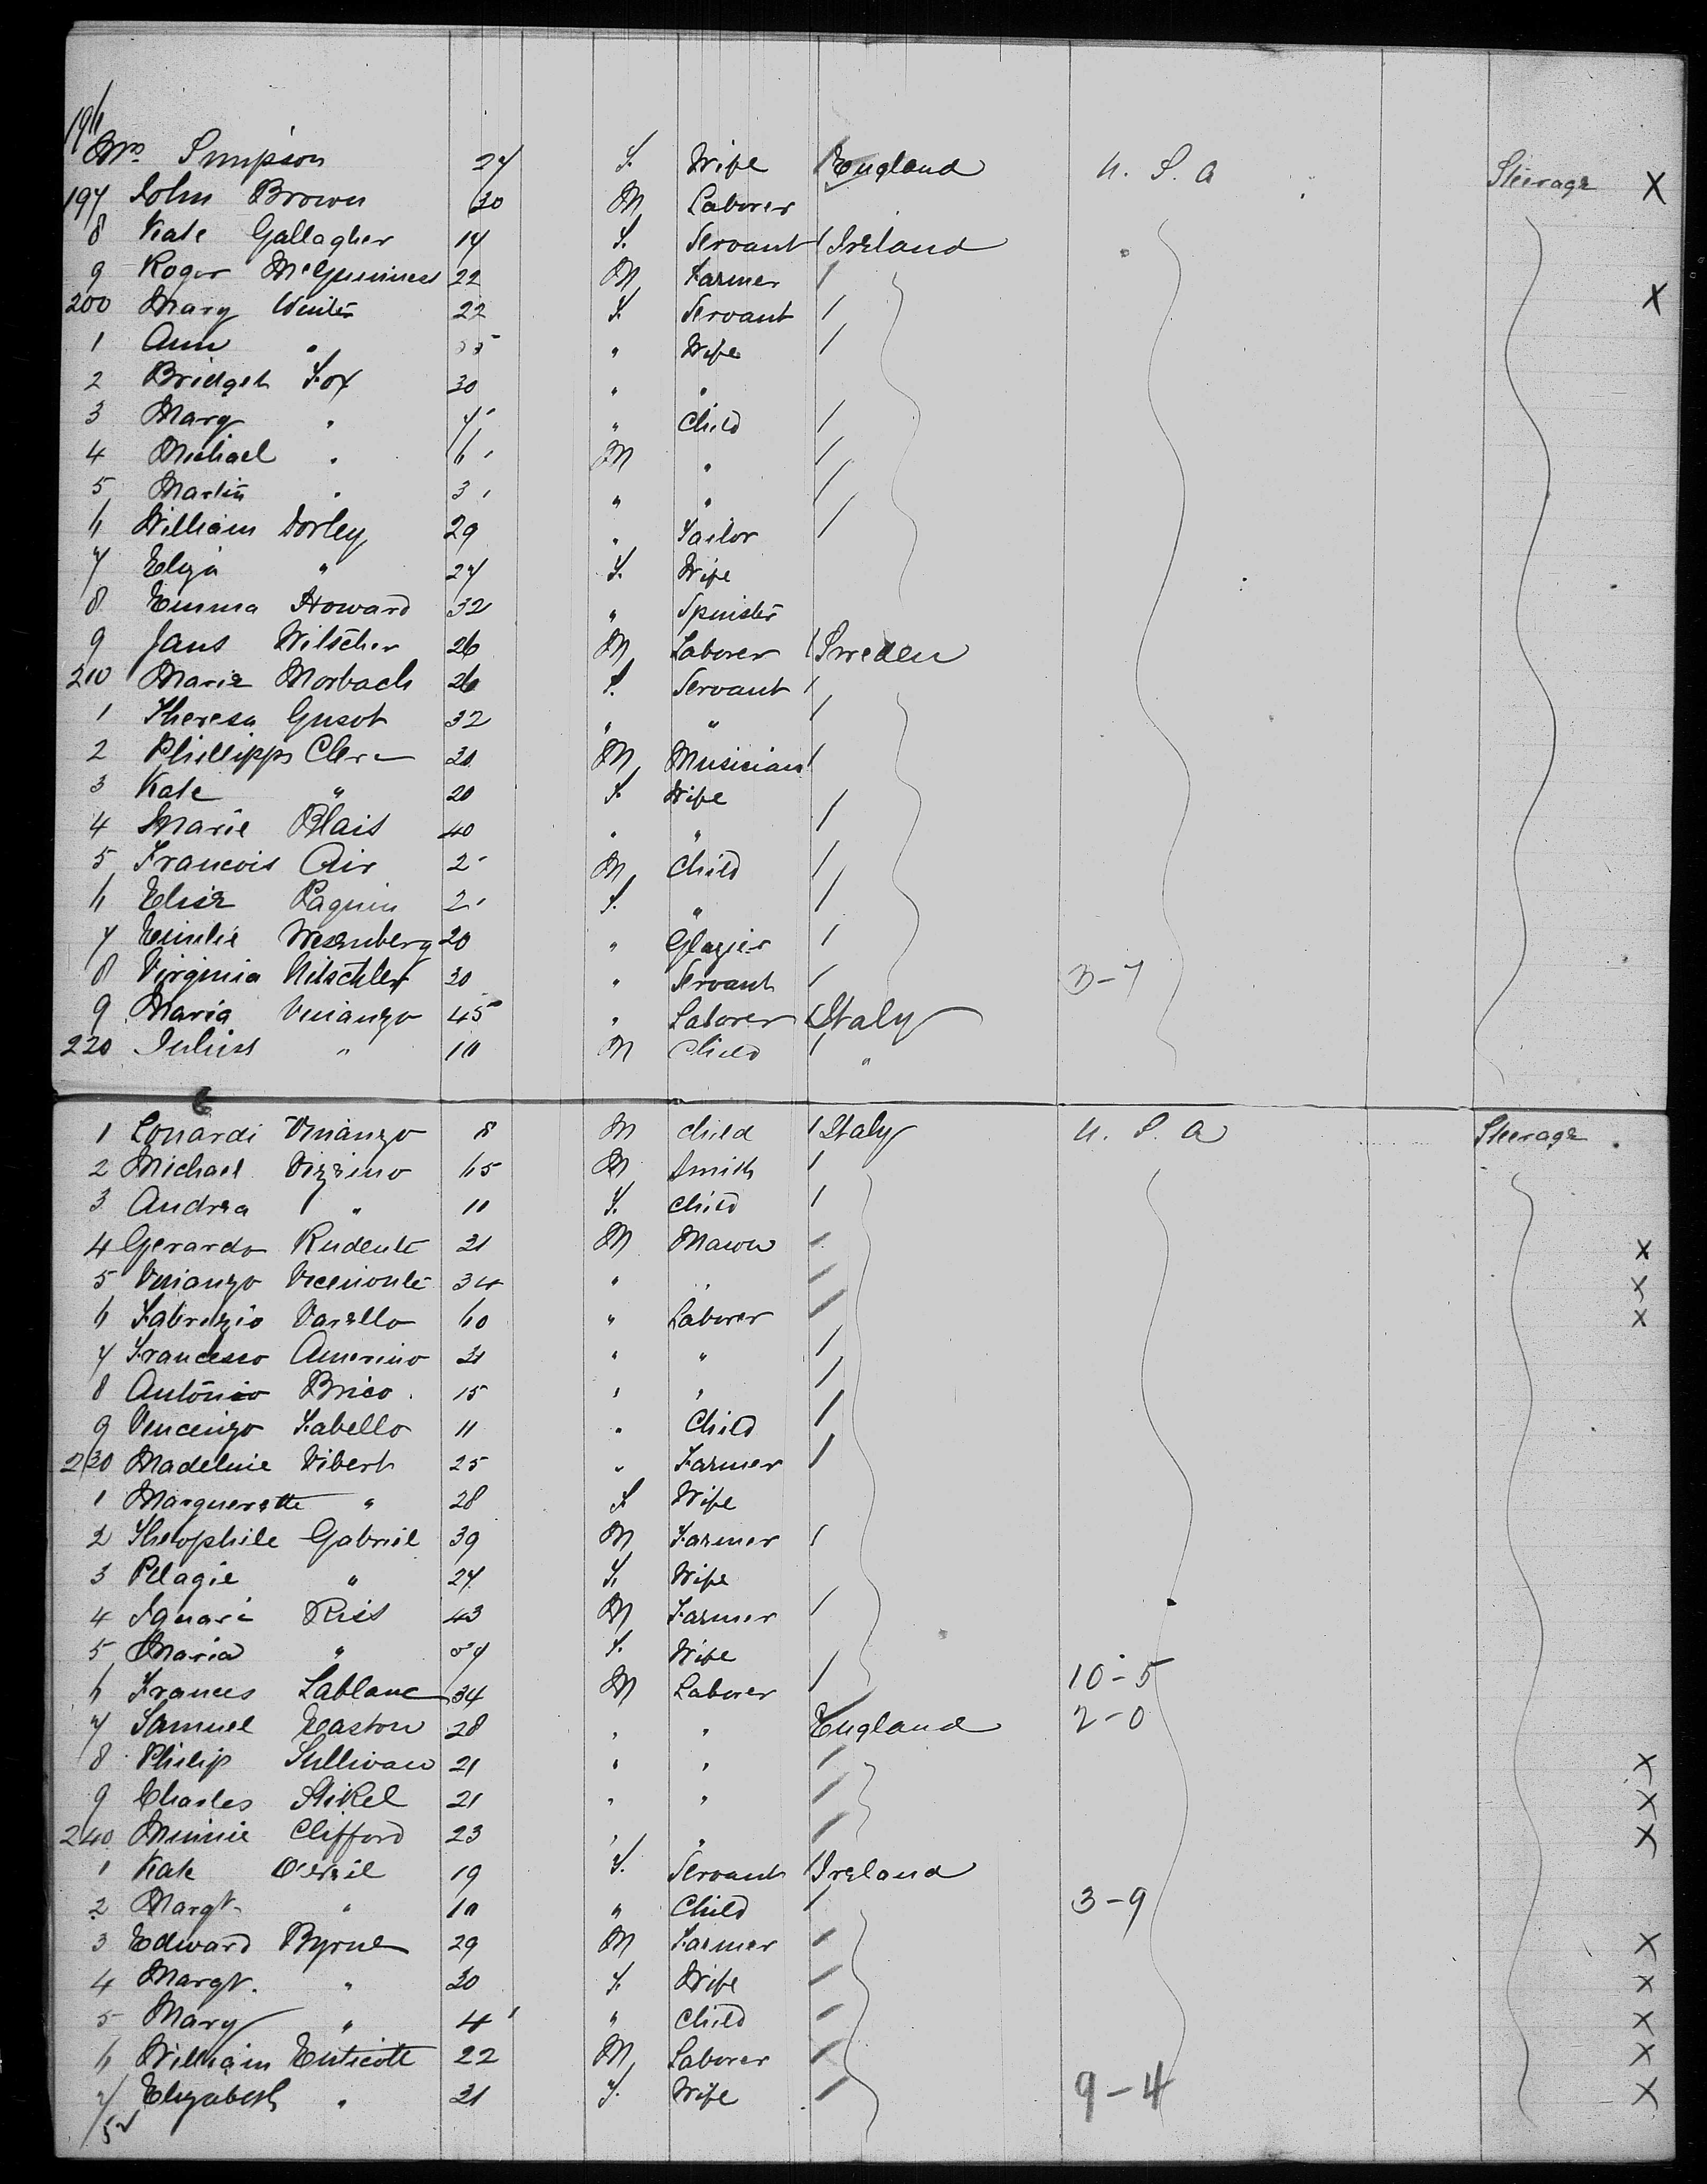 196 Mrs Simpson 27 F. Wife / England U. S. A Steerage X
197 John Brown 30 M Laborer
8 Kate Gallagher 17 F. Servant / Ireland
9 Roger McGuinness 22 M Farmer /
200 Mary Winter 22 F. Servant / X
1 Ann " " Wife /
2 Bridget Fox 30 " "
3 Mary " 7' " Child /
4 Michael " 6' M " /
5 Martin " 3' " " /
6 William Dorley 29 " Tailor /
7 Eliza " 27 F. Wife
8 Emma Howard 32 " Spinster
9 Jans Wilscher 26 M Laborer / Sweden
210 Marie Morbach 26 F. Servant /
1 Theresa Gusot 32 " " /
2 Phillipps Clere 30 M Musician /
3 Kate " 20 F. Wife
4 Marie Blais 40 " " /
5 Francois Air 2' M Child /
6 Elise Paquin 2' F. " /
7 Emilie Weenberg 20 " Glazier /
8 Virginia Nitschler 30 " Servant / 3-7
9 Maria Vinanzo 45 " Laborer / Italy
220 Juliss " 10 M Child / "
1 Lonardi Vinanzo 8 M child / Italy U. S. A Steerage
2 Michael Vizzino 65 M Smith /
3 Andrea " 10 F. child /
4 Gerardo Rudente 21 M Mason / X
5 Vinanzo Vicemonte 34 " " / X
6 Fabrezio Varello 60 " Laborer / X
7 Francesco Amerino 21 " " /
8 Antonio Briso 15 " " /
9 Vencenzo Fabello 11 " Child /
230 Madeline Vibert 25 " Farmer /
1 Marguerette " 28 F Wife
2 Theophile Gabriel 39 M Farmer /
3 Pelagie " 27 F. Wife
4 Ignari Riss 43 M Farmer /
5 Maria " F. Wife
6 Frances Lablanc 34 M Laborer / 10-5
7 Samuel Easton 28 " " England 2-0
8 Philip Sullivan 21 " " / X
9 Charles Stikel 21 " " / X
240 Minnie Clifford 23 " " / X
1 Kate O'Neil 19 F. Servant / Ireland
2 Margt. " 10 " Child / 3-9
3 Edward Byrne 29 M Farmer / X
4 Margt. " 30 F. Wife / X
5 Mary " 4' " Child / X
6 William Enticott 22 M Laborer / X
7 Elizabeth " 21 F. Wife / 9-4 X
52